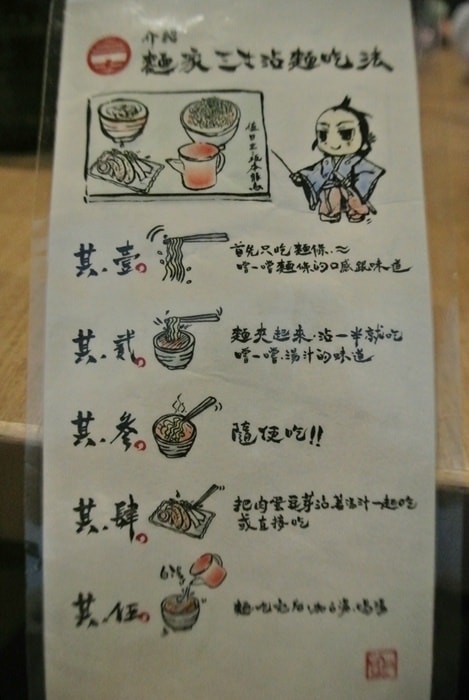 介紹
麵家三士沾麵吃法
其.壹
首先只吃麵條~
嚐一嚐麵條的口感跟味道
其.貳
麵夾起來.沾一半就吃
嚐一嚐.湯汁的味道
其.參
隨便吃!!
其.肆
把肉蛋豆芽沾著湯汁一起吃
或直接吃
其.伍
麵.吃完后